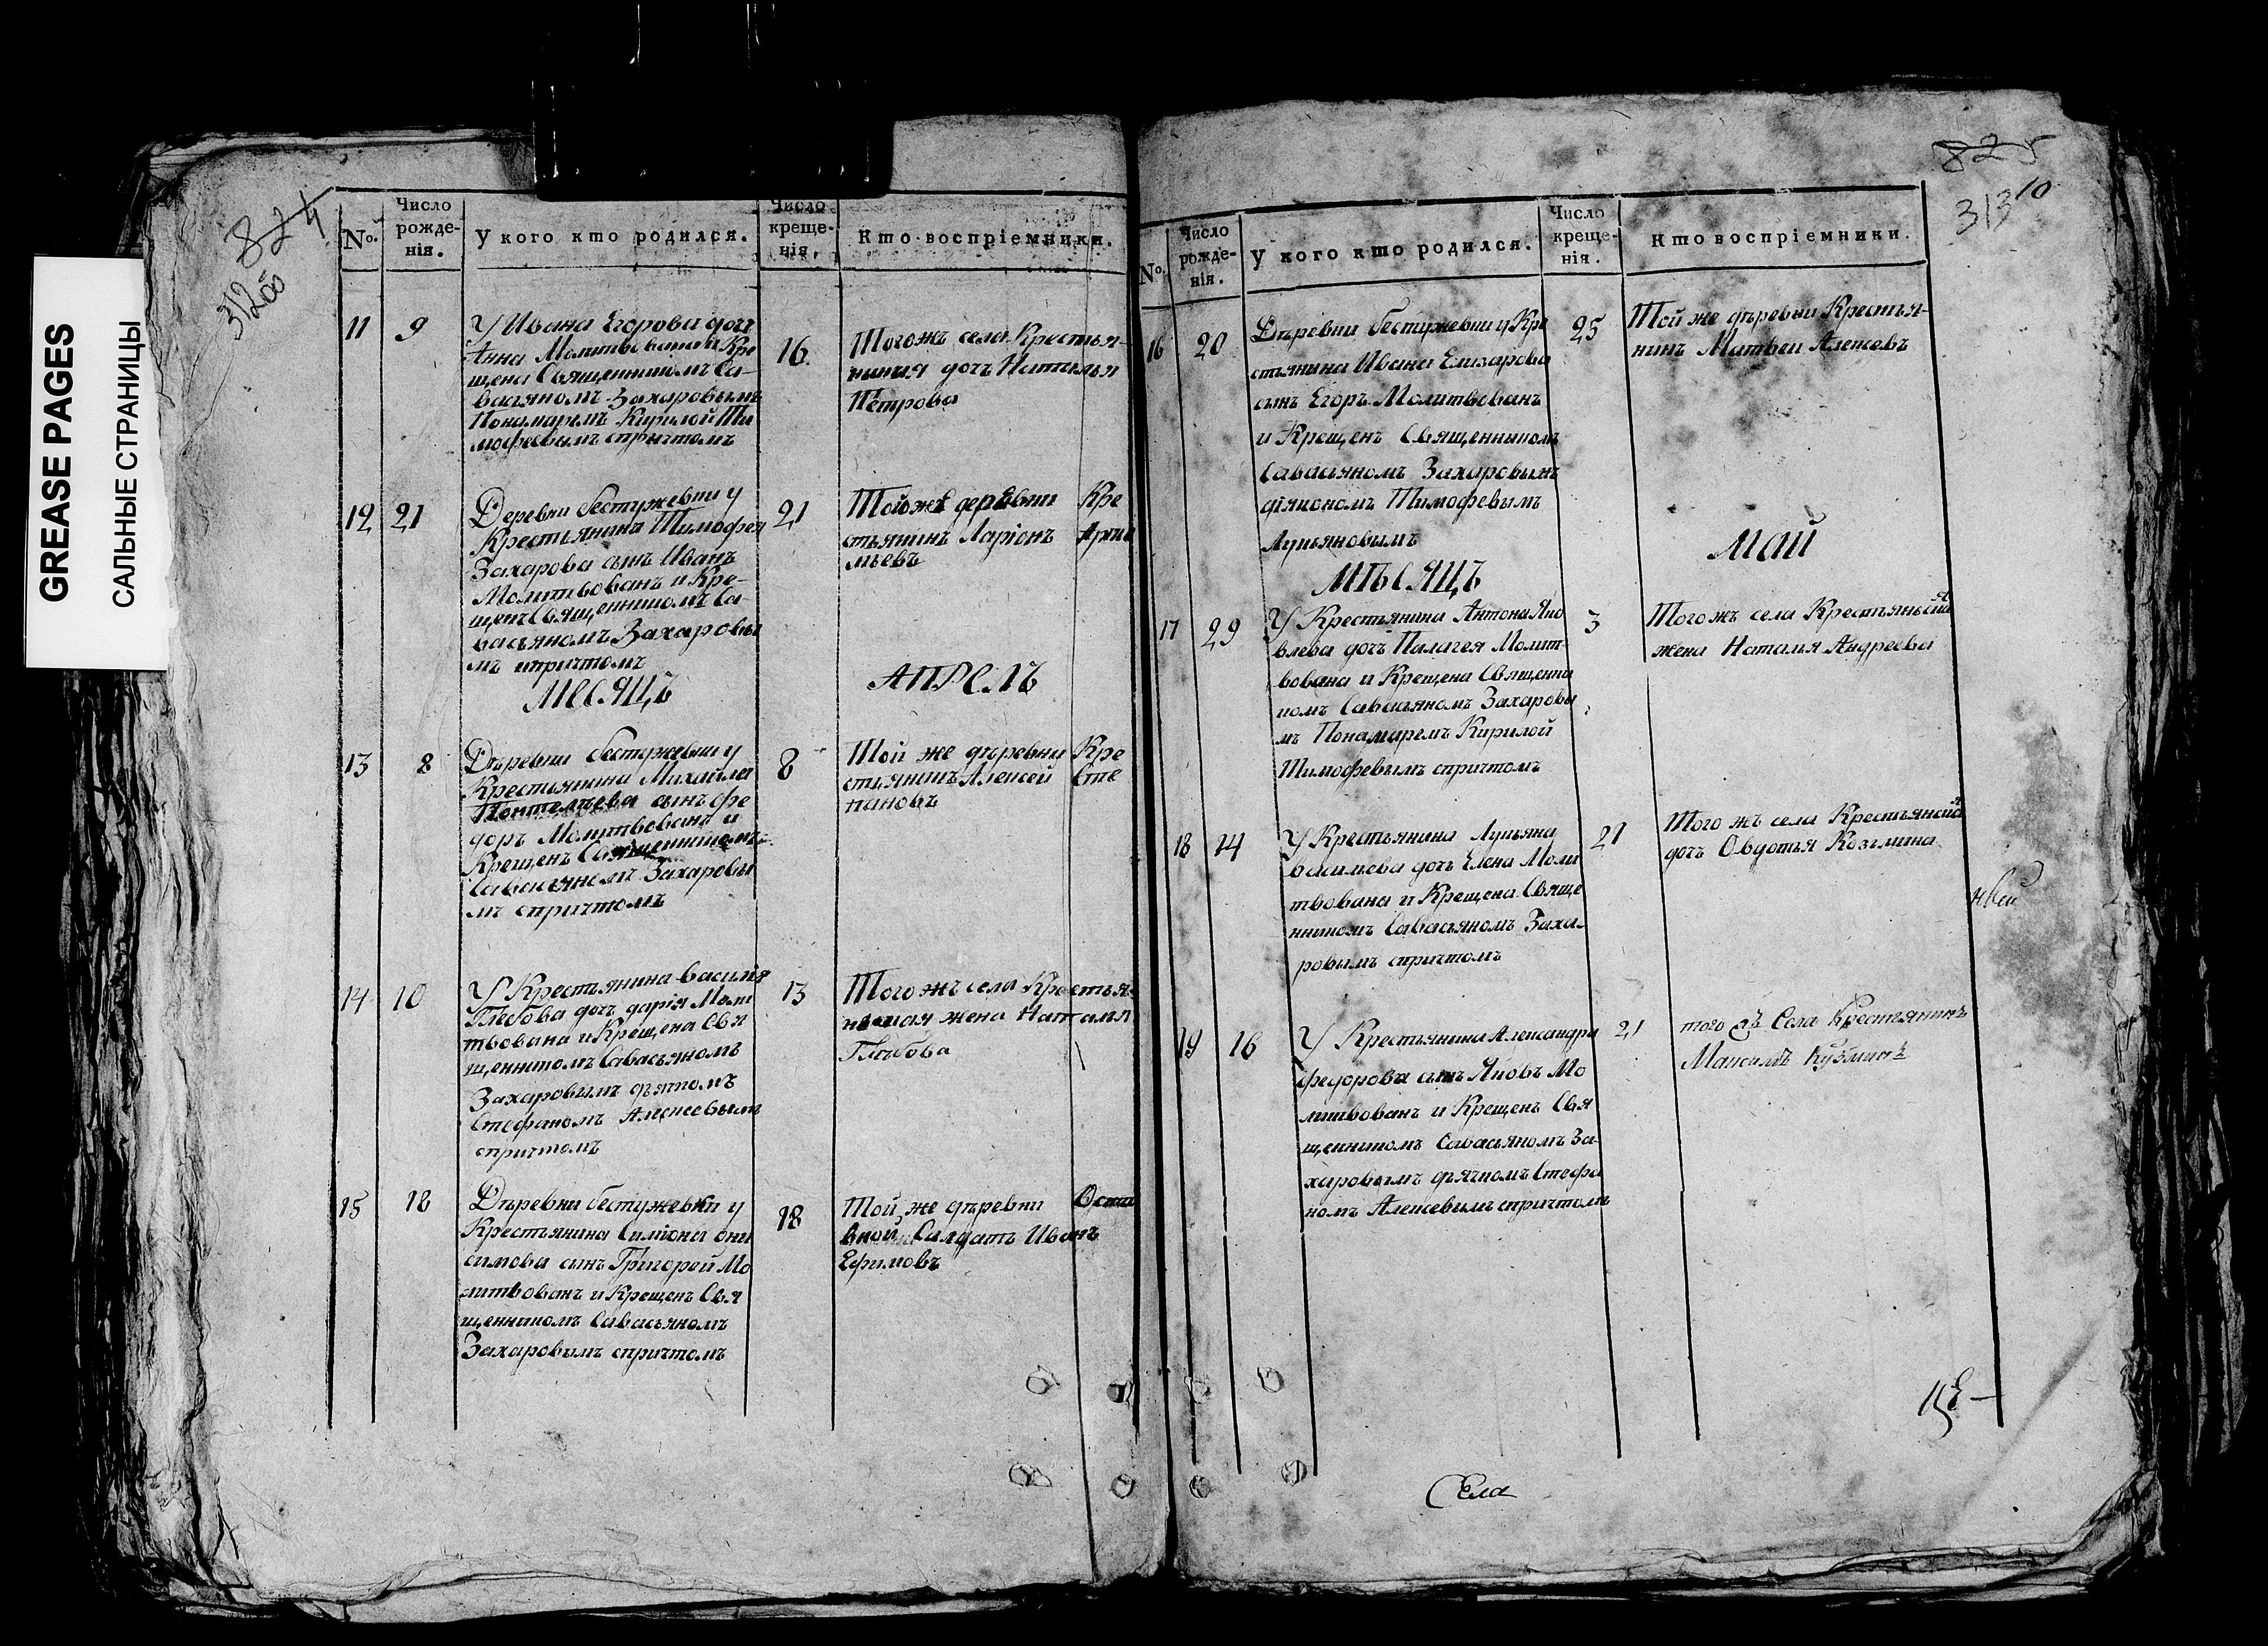 GREASE PAGES
САЛЬНЫЕ СТРАНИЦЫ
824
312об
№.
Число рожденія.
У кого кто родился.
Число крещенія.
Кто воспріемники.
11
9
У Ивана Егорова доч
Анна Молитвована и Кре
щена Священникомъ Са-
васьяномъ Захаровымъ
Понамаремъ Кирилой Ти
мофеевымъ спричтомъ
16
Тогожъ села Крестья-
ниния дочъ Наталья
Петрова
12
21
Деревни бестужевки у
Крестьянина Тимофея
Захарова сынъ Иванъ
Молитвованъ и Кре-
щенъ Священникомъ Са-
васьяномъ Захаровы
мъ спричтомъ
21
Тойже деревни Кре
стьянинъ Ларіонъ Архи
пьевъ
МЕСЯЦЪ
АПРЕЛЬ
13
8
Дѣревни бестужевки у
Крестьянина Михайла
Понтелѣева сынъ фе
доръ Молитвованъ и
Крещенъ Священникомъ
Савасьяномъ Захаровы
мъ спричтомъ
8
Той же дѣревни Кре
стьянинъ Алексей Сте
пановъ
14
10
У Крестьянина василья
Глебова дочъ дарія Моли
твована и Крещена Свя
щенникомъ Савасьяномъ
Захаровымъ дьячкомъ
Стефаномъ Алексевымъ
спричтомъ
13
Того жъ села Крестья
нская жена Наталя
Глѣбова
15
18
Дѣревни бестужевки у
Крестьянина Симіона они
симова сынъ Григорей Мо
литвованъ и Крещенъ Свя
щенникомъ Савасьяномъ
Захаровымъ спричтомъ
18
Той же дѣревни Оста
вной Салдатъ Иванъ
Ефимовъ
825
313
10
№.
Число рожденія.
У кого кто родился.
Число крещенія.
Кто воспріемники.
16
20
Дѣревни бестужевки у Кре
стьянина Ивана Елизарова
сынъ Егоръ Молитвованъ
и Крещенъ Священникомъ
Савасьяномъ Захаровымъ
діякономъ Тимофевымъ
Лукьяновымъ
25
Той же дѣревни Крестья-
нинъ Матвеи Алексевъ
МѢСЯЦЪ
МАЙ
17
29
У Крестьянина Антона Яко
влева дочъ Палагея Молит-
вована и Крещена Священни
комъ Савасьяномъ Захаровы
мъ Понамаремъ Кирилой
Тимофевымъ спричтомъ
3
Того жъ села Крестьянская
жена Наталя Андреева
18
14
У Крестьянина Лукьяна
васильева дочъ Елена Моли
твована и Крещена Свяще
нникомъ Савасьяномъ Заха-
ровымъ спричтомъ
21
Того жъ села Крестьянская
дочъ Овдотья Козьмина
19
16
У Крестьянина Александра
федорова сынъ Яковъ Мо
литвованъ и Крещенъ Свя
щенникомъ Савасьяномъ За-
харовымъ дьячкомъ Стефа
номъ Алексевымъ спричтомъ
21
того жъ Села Крестьянинъ
Максимъ Кузминъ
Села